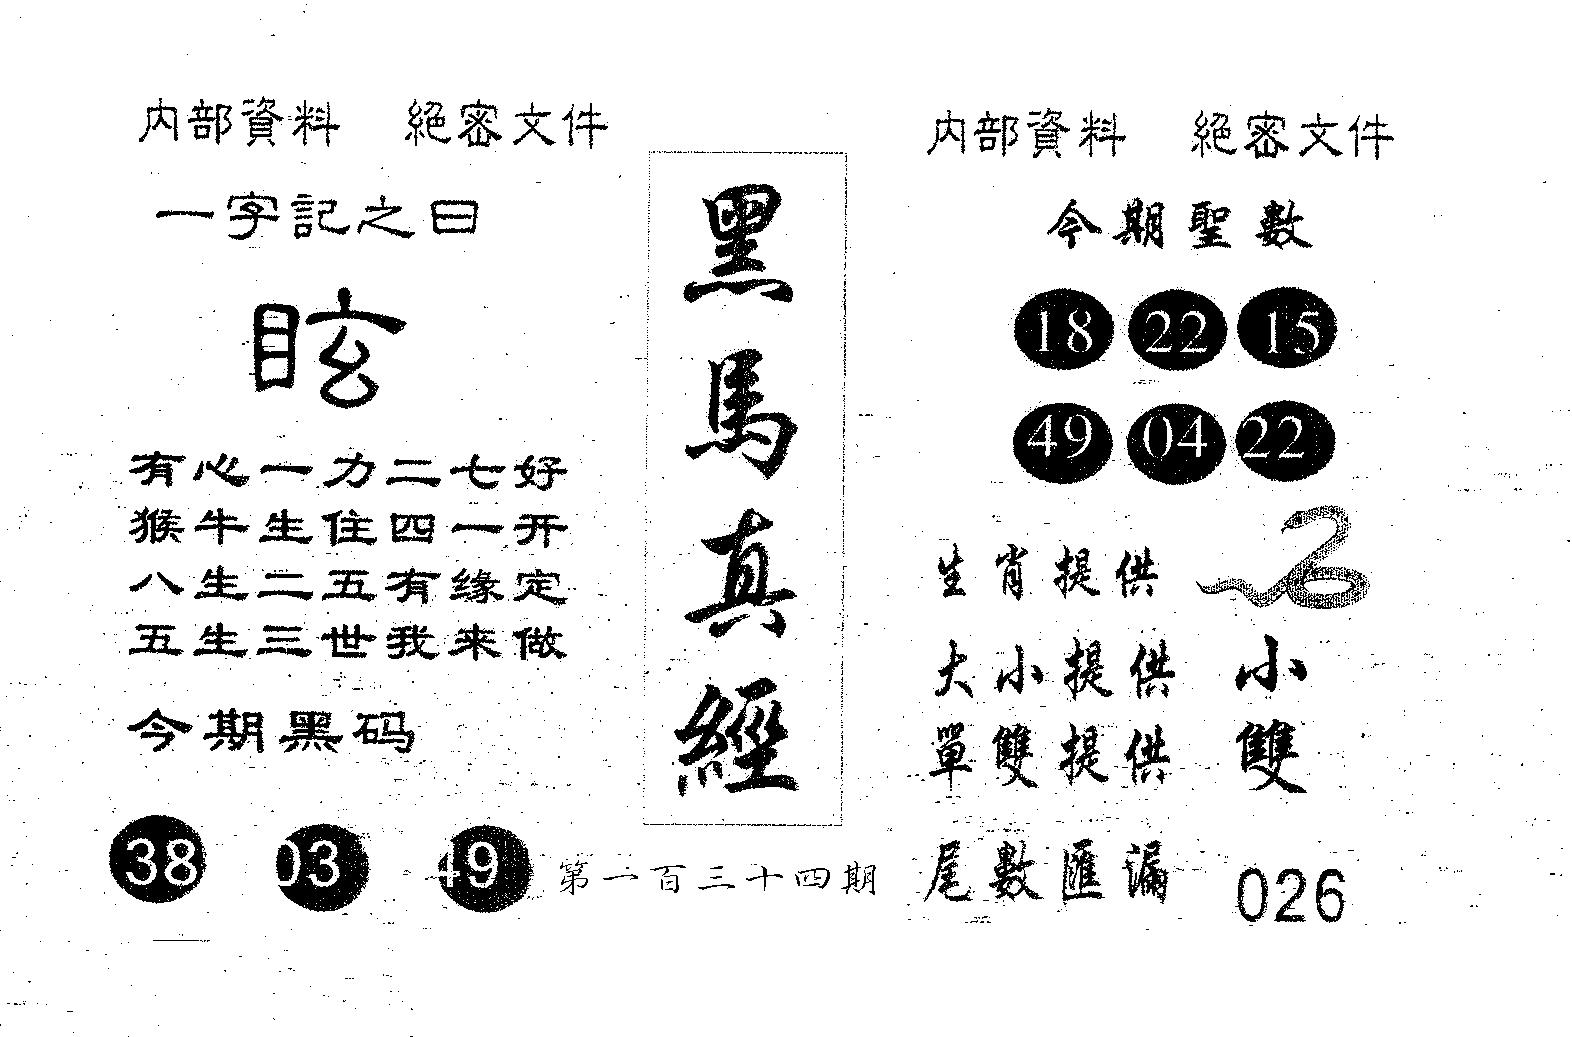 内部資料 絕密文件
一字記之曰
眩
有心一力二七好
猴牛生住四一开
八生二五有缘定
五生三世我来做
今期黑码
38 03 49
黑馬真經
第一百三十四期
内部資料 絕密文件
今期聖數
18 22 15
49 04 22
生肖提供
大小提供 小
單雙提供 雙
尾數匯漏 026